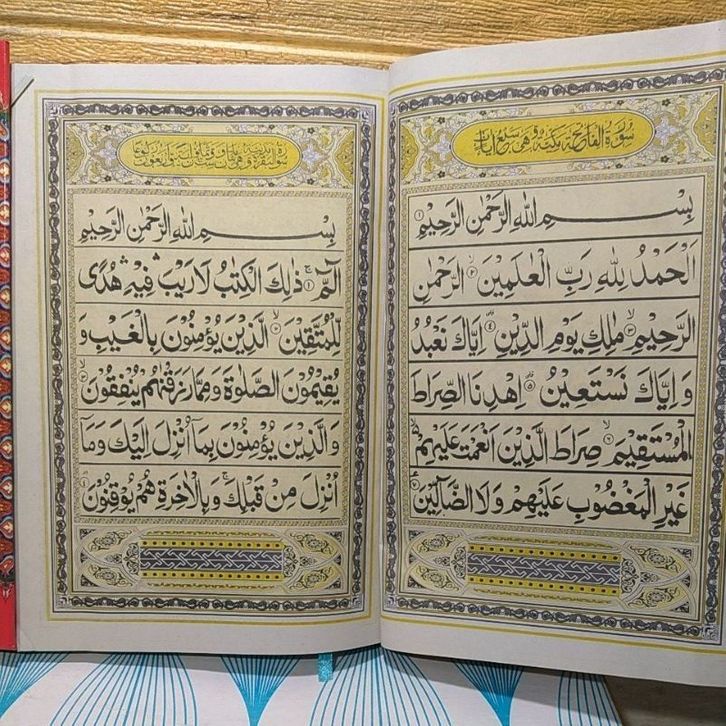 سورة الفاتحة مكية وهي سبع آيات
بِسْمِ اللهِ الرَّحْمٰنِ الرَّحِيْمِ ۝۱
اَلْحَمْدُ لِلّٰهِ رَبِّ الْعٰلَمِيْنَ ۝۲ الرَّحْمٰنِ
الرَّحِيْمِ ۝۳ مٰلِكِ يَوْمِ الدِّيْنِ ۝۴ اِيَّاكَ نَعْبُدُ
وَ اِيَّاكَ نَسْتَعِيْنُ ۝۵ اِهْدِنَا الصِّرَاطَ
الْمُسْتَقِيْمَ ۝۶ صِرَاطَ الَّذِيْنَ اَنْعَمْتَ عَلَيْهِمْ
غَيْرِ الْمَغْضُوْبِ عَلَيْهِمْ وَلَا الضَّآلِّيْنَ ۝۷
بِسْمِ اللهِ الرَّحْمٰنِ الرَّحِيْمِ
الٓمّٓ ۝۱ ذٰلِكَ الْكِتٰبُ لَا رَيْبَ فِيْهِ هُدًى
لِّلْمُتَّقِيْنَ ۝۲ الَّذِيْنَ يُؤْمِنُوْنَ بِالْغَيْبِ وَ
يُقِيْمُوْنَ الصَّلٰوةَ وَمِمَّا رَزَقْنٰهُمْ يُنْفِقُوْنَ ۝۳
وَالَّذِيْنَ يُؤْمِنُوْنَ بِمَآ اُنْزِلَ اِلَيْكَ وَمَآ
اُنْزِلَ مِنْ قَبْلِكَ وَبِالْاٰخِرَةِ هُمْ يُوْقِنُوْنَ ۝۴